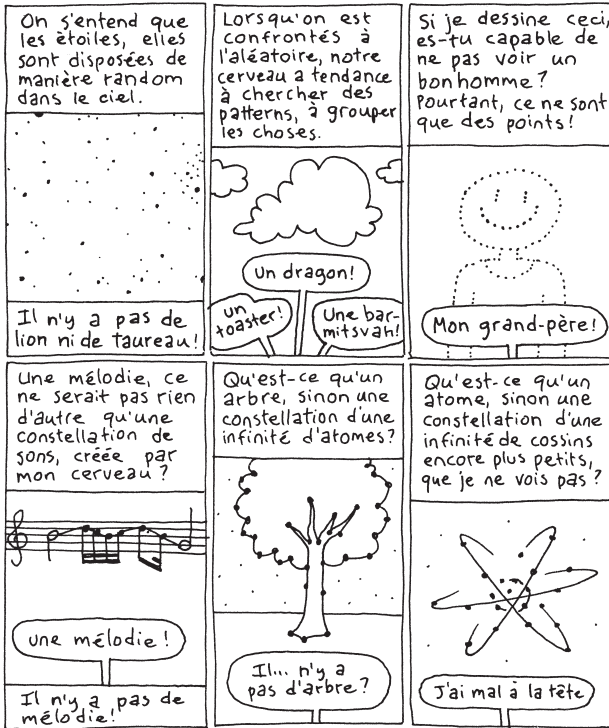 On s'entend que
les étoiles, elles
sont disposées de
manière random
dans le ciel.
Il n'y a pas de
lion ni de taureau!
Lorsqu'on est
confrontés à
l'aléatoire, notre
cerveau a tendance
à chercher des
patterns, à grouper
les choses.
Un dragon!
un
toaster!
Une bar-
mitsvah!
Si je dessine ceci,
es-tu capable de
ne pas voir un
bonhomme?
Pourtant, ce ne sont
que des points!
Mon grand-père!
Une mélodie, ce
ne serait pas rien
d'autre qu'une
constellation de
sons, créée par
mon cerveau?
une mélodie!
Il n'y a pas de
mélodie!
Qu'est-ce qu'un
arbre, sinon une
constellation d'une
infinité d'atomes?
Il... n'y a
pas d'arbre?
Qu'est-ce qu'un
atome, sinon une
constellation d'une
infinité de cossins
encore plus petits,
que je ne vois pas?
J'ai mal à la tête